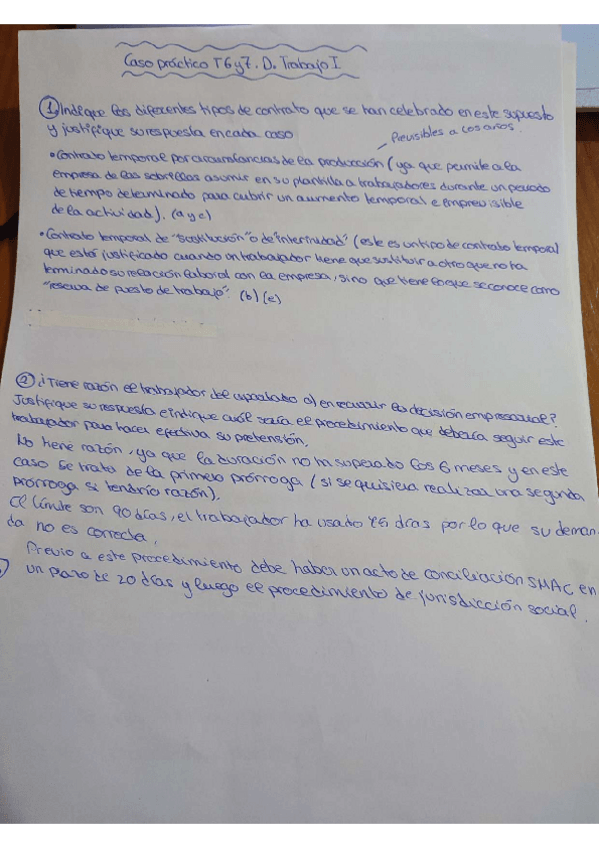 Caso práctico T6 y 7. D. Trabajo I.
① Indique los diferentes tipos de contrato que se han celebrado en este supuesto
y justifique su respuesta en cada caso
Previsibles a los años.
• Contrato temporal por circunstancias de la producción (ya que permite a la
empresa de las asumir en su plantilla a trabajadores durante un periodo
de tiempo determinado para cubrir un aumento temporal e imprevisible
de la actividad). (a y c)
• Contrato temporal de "sustitución" o de "interinidad" (este es un tipo de contrato temporal
que está justificado cuando un trabajador tiene que sustituir a otro que no ha
terminado su relación laboral con la empresa, sino que tiene lo que se conoce como
"reserva de puesto de trabajo". (b) (e)
② ¿Tiene razón el trabajador del apartado a) en recurrir la decisión empresarial?
Justifique su respuesta e indique cuál sería el procedimiento que debería seguir este
trabajador para hacer efectiva su pretensión.
No tiene razón, ya que la duración no ha superado los 6 meses y en este
caso se trata de la primera prórroga (si se quisiera realizar una segunda
prórroga sí tendría razón).
El límite son 90 días, el trabajador ha usado días por lo que su deman-
da no es correcta.
Previo a este procedimiento debe haber un acto de conciliación SMAC en
un plazo de 20 días y luego el procedimiento de jurisdicción social.